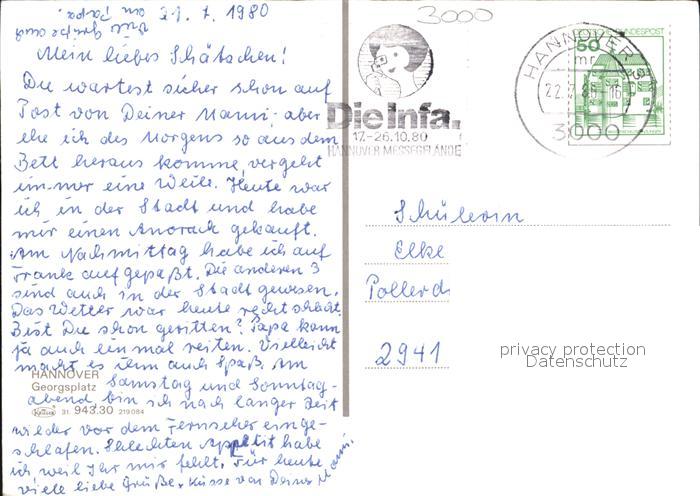 21. 7. 1980
Mein liebes Schätzchen!
Du wartest sicher schon auf
Post von Deiner Mami; aber
ehe ich des Morgens so aus dem
Bett heraus komme, vergeht
immer eine Weile. Heute war
ich in der Stadt und habe
mir einen Anorack gekauft.
Am Nachmittag habe ich auf
Frank aufgepaßt. Die anderen 3
sind auch in der Stadt gewesen.
Das Wetter war heute recht schlecht.
Bist Du schon geritten? Papa kann
ja auch einmal reiten. Vielleicht
macht es ihm auch Spaß. Am
Samstag und Sonntag-
abend bin ich nach langer Zeit
wieder vor dem Fernseher einge-
schlafen. Schlechten Appetit habe
ich weil Ihr mir fehlt. Für heute
viele liebe Grüße + Küsse von Deiner Mami.
HANNOVER
Georgsplatz
31. 943.30 219084
3000
Die Infa.
17.-26.10.80
HANNOVER MESSEGELÄNDE
HANNOVER
mr
3000
50
BUNDESPOST
Schülerin
Elke
2941
privacy protection
Datenschutz